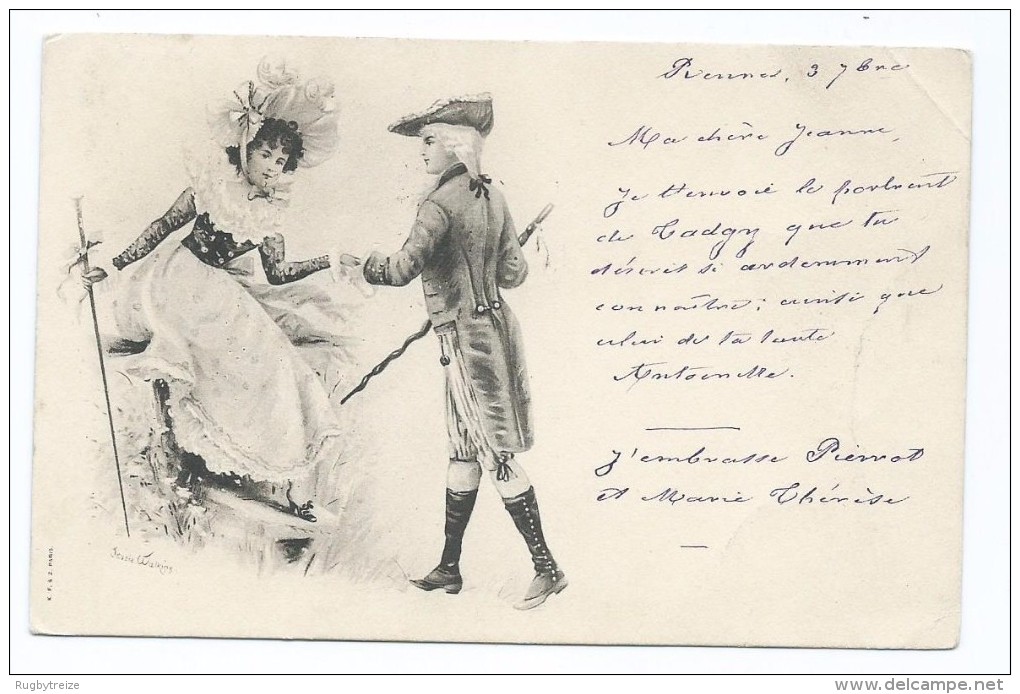 Rennes, 3 7bre
Ma chère Jeanne,
Je t'envoie le portrait
de Tadgy que tu
désirais si ardemment
connaître ; ainsi que
celui de ta tante
Antoinette.
J'embrasse Pierrot
et Marie Thérèse
Watkins
K. F. & Z. PARIS.
Rugbytreize
www.delcampe.net